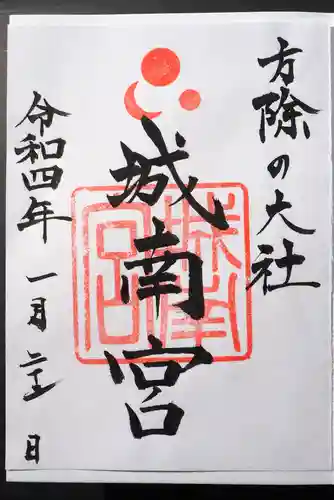 方除の大社
城南宮
令和四年一月二十五日